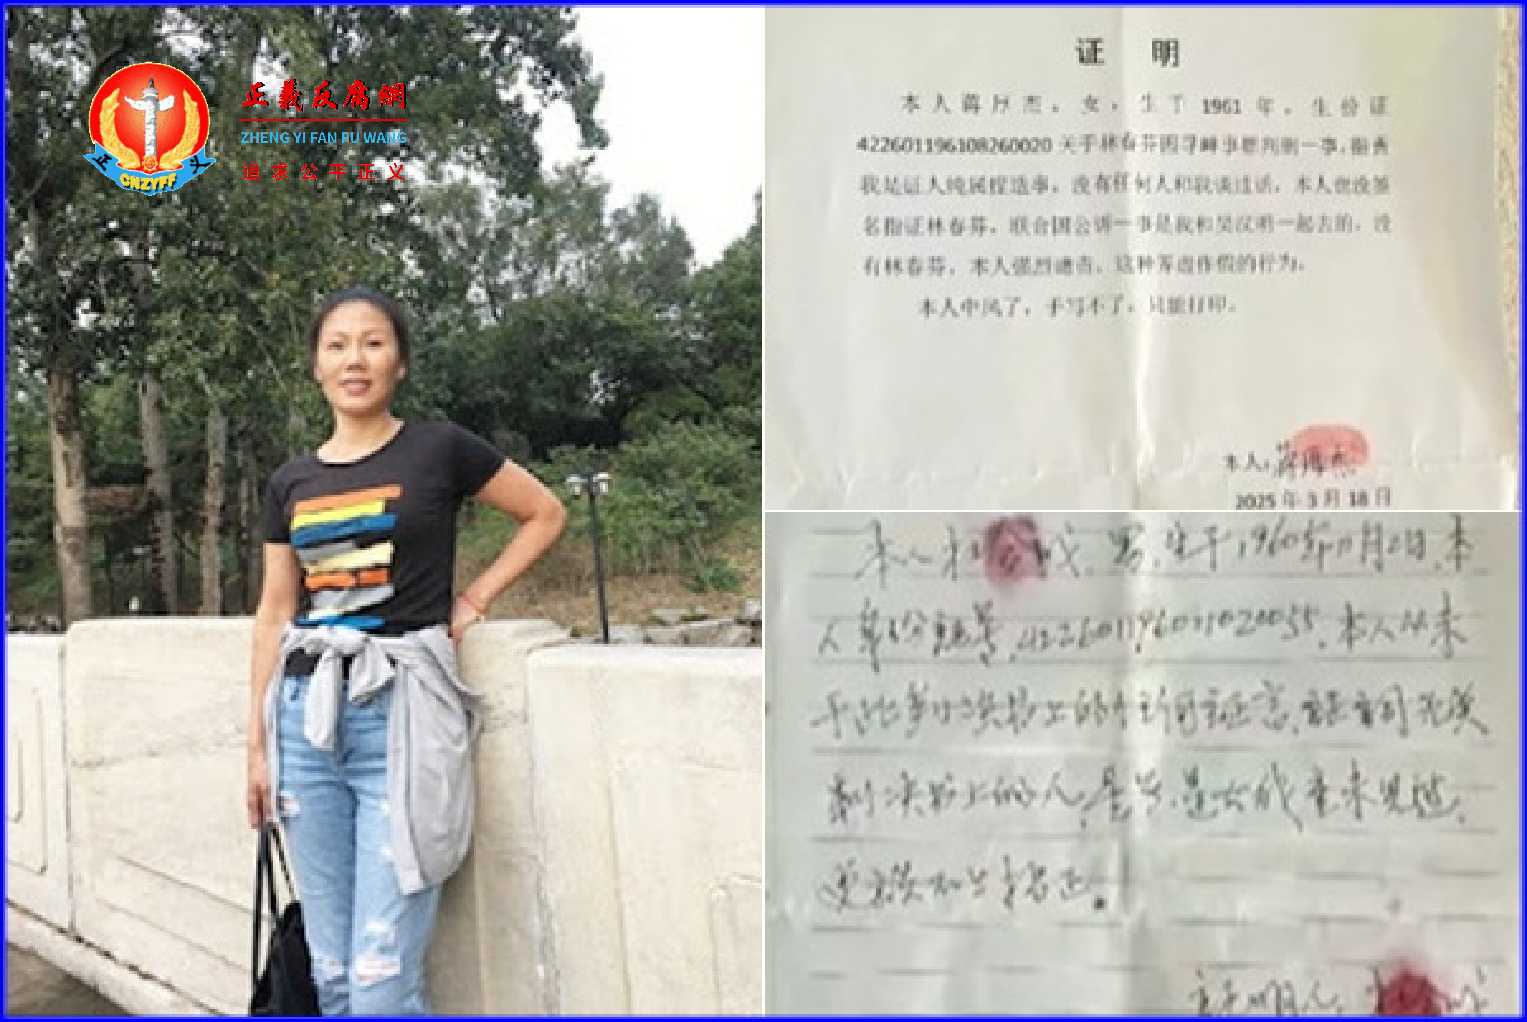 正義反腐網
ZHENG YI FAN FU WANG
追求公平正义
正 义
CNZYFF
证 明
本人蒋厚杰，女，生于 1961 年，生份证
422601196108260020 关于林春芬因寻衅事惹判刑一事，指责
我是证人纯属捏造事，没有任何人和我谈过话，本人也没签
名指证林春芬，联合国公讲一事是我和吴汉明一起去的，没
有林春芬，本人强烈谴责，这种弄虚作假的行为。
本人中风了，手写不了，只能打印。
本人：蒋厚杰
2025 年 3 月 18 日
本人 成，男，生于1960年11月2日，本
人身份证号，422601196011020055，本人从未
于此判决书上的任何证言，证词
判决书上的人，是男，是女我意未见过，
更谈不上指正。
证明人，